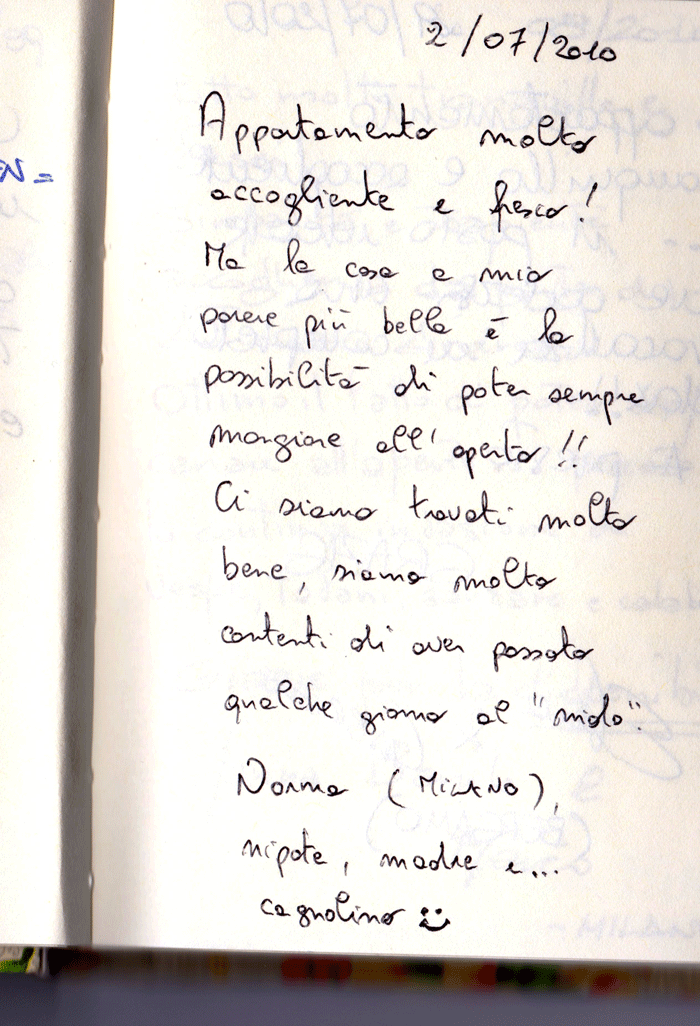 2/07/2010
Appartamento molto
accogliente e fresco!
Ma la cosa a mio
parere più bella è la
possibilità di poter sempre
mangiare all'aperto!!
Ci siamo trovati molto
bene, siamo molto
contenti di aver passato
qualche giorno al "nido".
Norma (MILANO),
nipote, madre e...
cagnolino